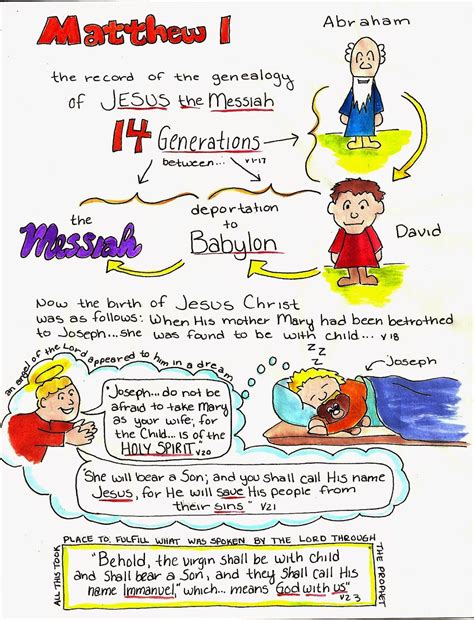 Matthew 1
Abraham
the record of the genealogy
of JESUS the Messiah
14 Generations
between... v1-17
the
Messiah
deportation
to
Babylon
David
Now the birth of Jesus Christ
was as follows: When His mother Mary had been betrothed
to Joseph...she was found to be with child... v18
an angel of the Lord appeared to him in a dream
z z z
Joseph
"Joseph... do not be
afraid to take Mary
as your wife; for
the Child... is of the
HOLY SPIRIT" v20
"She will bear a Son; and you shall call His name
Jesus, for He will save His people from
their sins" v21
ALL THIS TOOK
PLACE TO FULFILL WHAT WAS SPOKEN BY THE LORD THROUGH
THE PROPHET
"Behold, the virgin shall be with child
and shall bear a Son, and they shall call His
name Immanuel," which... means God with us"
v23